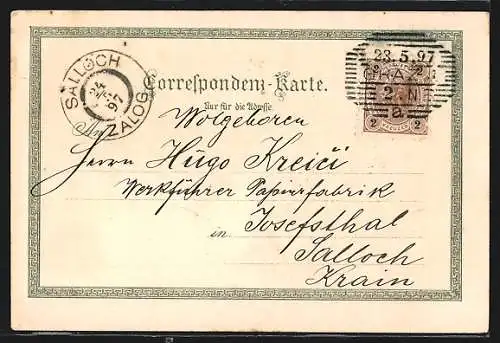 SALLOCH
24
97
ZALOG
23.5.97
GRAZ
2 N
a
2 2
KREUZER
Correspondenz-Karte.
Nur für die Adresse.
An
Wolgeboren
Herrn Hugo Kreiči
Werkführer Papierfabrik
Josefsthal
in
Salloch
Krain